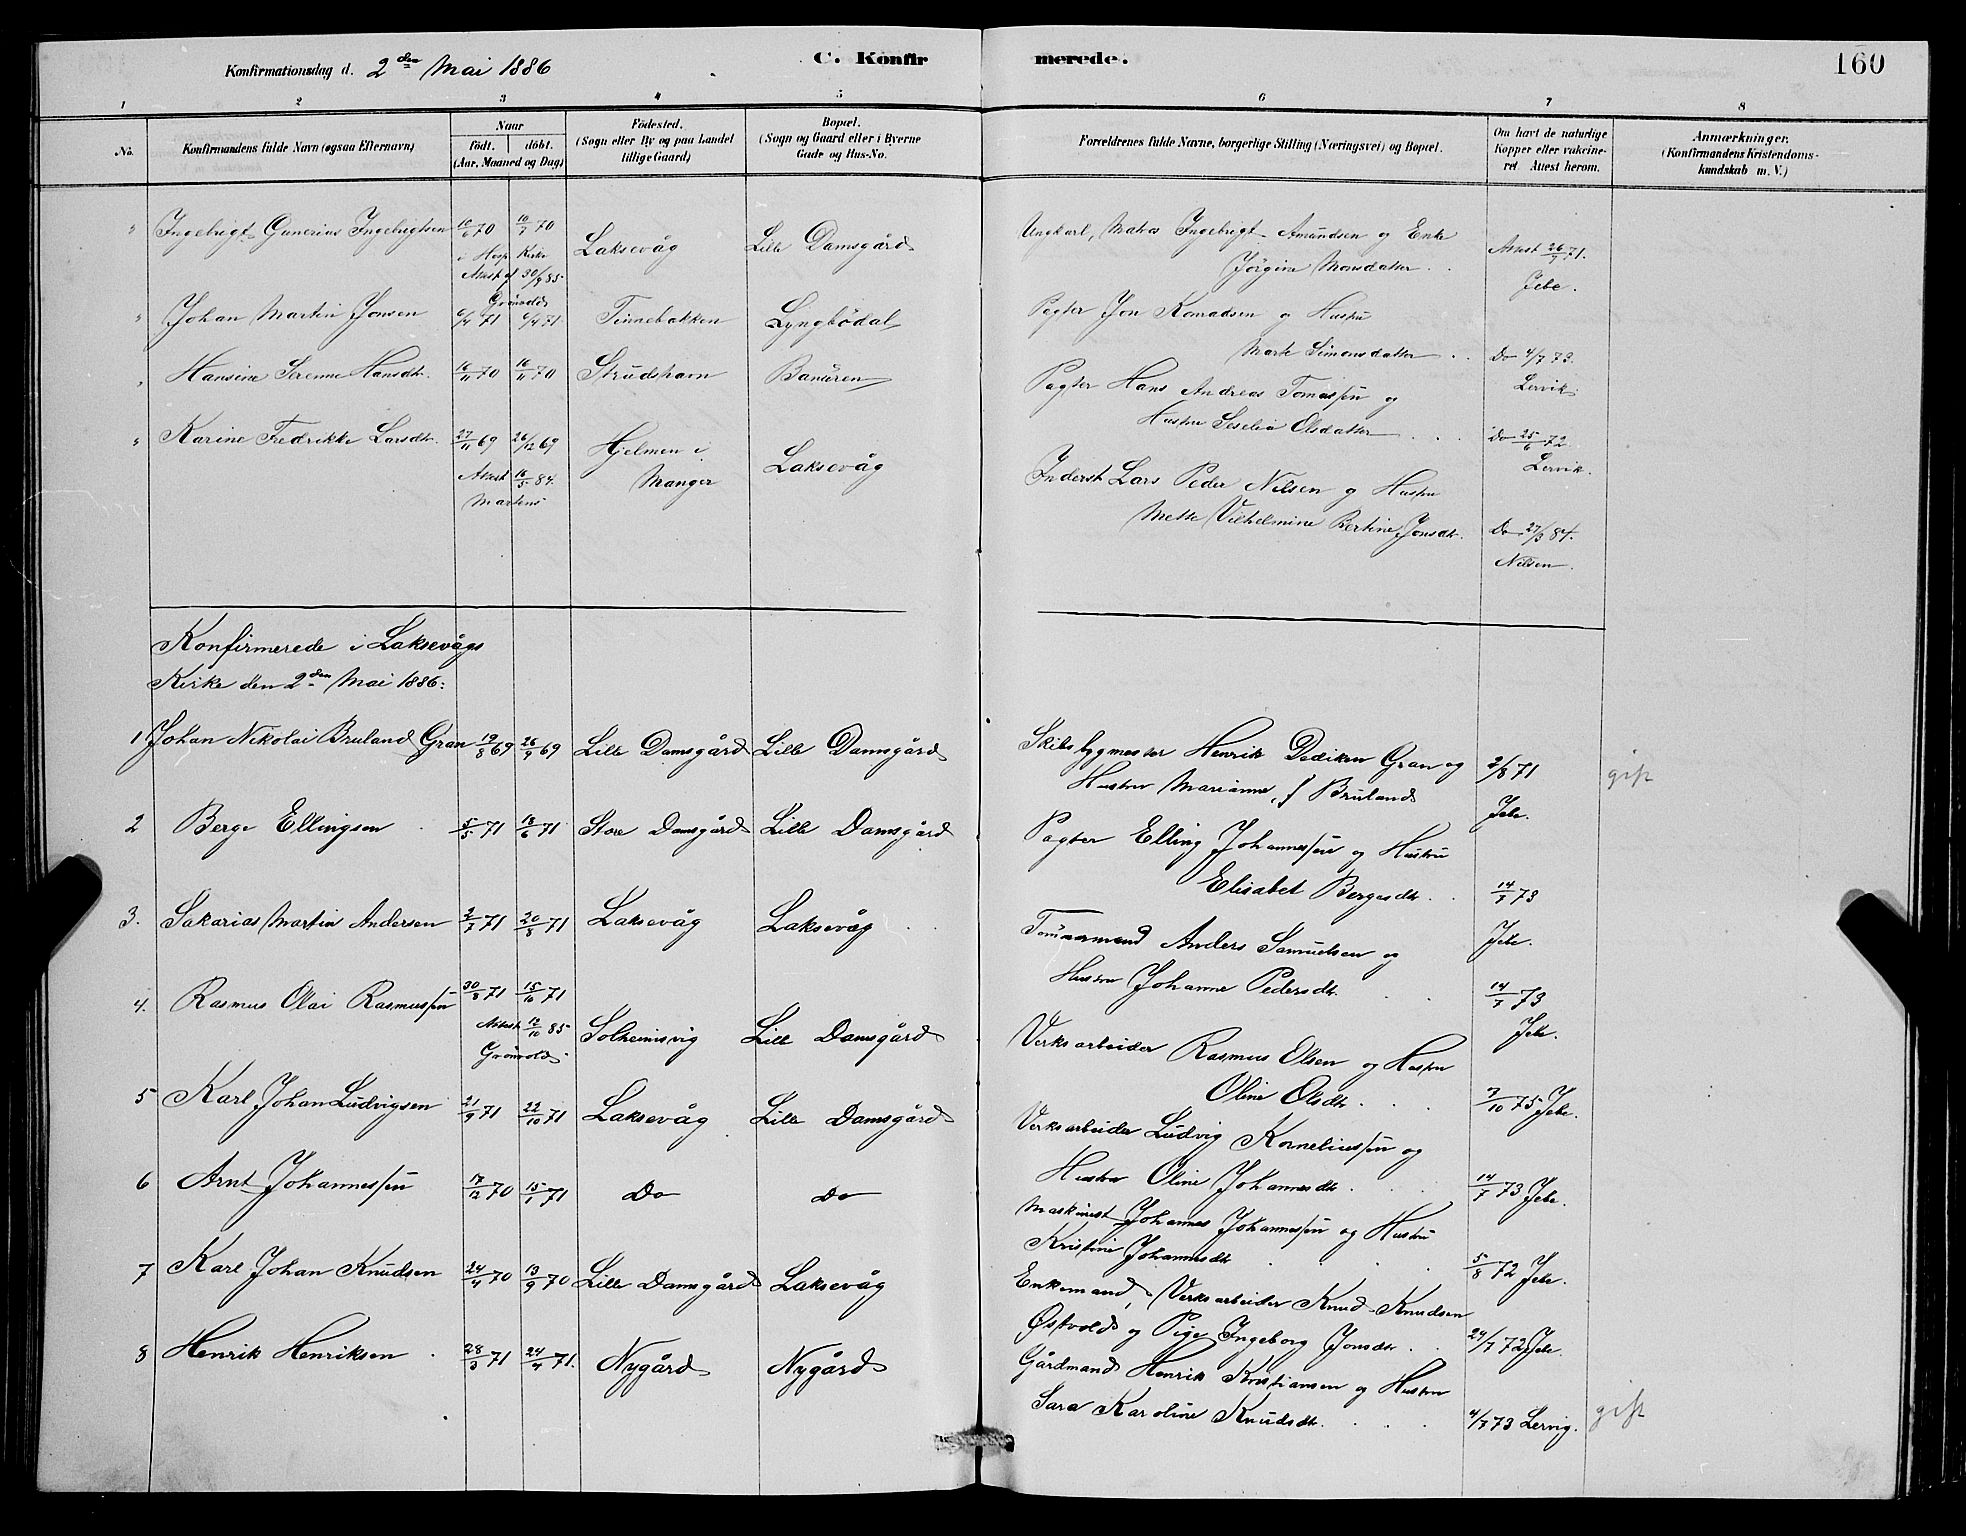 Konfirmationsdag d. 2den Mai 1886
C. Konfirmerede.
160
1 2 3 4 5 6 7 8
No.
Konfirmandens fulde Navn (ogsaa Efternavn)
Naar
født. døbt.
(Aar, Maaned og Dag)
Fødested.
(Sogn eller By og paa Landet
tillige Gaard)
Bopæl.
(Sogn og Gaard eller i Byerne
Gade og Hus-No.
Forældrenes fulde Navne, borgerlige Stilling (Næringsvei) og Bopæl.
Om havt de naturlige
Kopper eller vakcine-
ret Attest herom.
Anmærkninger.
(Konfirmandens Kristendoms-
kundskab m. V.)
" Ingebrigt Gunerius Ingebrigtsen 10/6 70 10/7 70 Laksevåg Lille Damsgård
i Hosp Kirke
Attest af 30/9 85
Grönvold
Ungkarl, Matros Ingebrigt Amundsen og Enke
Jörgine Monsdatter . . Attest 26/9 71.
Jebe.
" Johan Martin Jonsen 6/4 71 6/4 71 Tinnebakken Lyngbödal
Pagter Jon Konradsen og Hustru
Marte Simonsdatter . . Do 4/7 73.
Lervik
" Hansine Serenne Hansdtr. 16/11 70 16/11 70 Strudshavn Banüren
Pagter Hans Andreas Tomassen og
Hustru Seselia Olsdatter . . . Do 25/6 72
Lervik.
" Karine Fredrikke Larsdtr. 27/11 69 26/12 69 Hjelmen i
Manger Laksevåg
Attest 16/5 84.
Martens
Inderst Lars Peder Nilsen og Hustru
Mette Vilhelmine Bertine Jonsdtr. Do 27/3 84.
Nilsen.
Konfirmerede i Laksevågs
Kirke den 2den Mai 1886:
1 Johan Nikolai Bruland Gran 19/8 69 26/9 69 Lille Damsgård Lille Damsgård
Skibsbygmester Henrik Dediken Gran og
Hustru Marianne, f Bruland 2/8 71
Jebe.
gift
2 Berge Ellingsen 5/5 71 18/6 71 Store Damsgård Lille Damsgård
Pagter Elling Johannessen og Hustru
Elisabet Bergesdtr . . 14/7 73
Jebe.
3. Sakarias Martin Andersen 2/7 71 20/8 71 Laksevåg Laksevåg
Tömmermand Anders Samuelsen og
Hustru Johanne Pedersdtr. . . 14/7 73
Jebe.
4. Rasmus Olai Rasmussen 30/8 71 15/10 71
Attest 12/10 85 Solheimsvig Lille Damsgård
Grönvold
Verksarbeider Rasmus Olsen og Hustru
Oline Olsdtr . . . 7/10 75 Jebe.
5 Karl Johan Ludvigsen 21/9 71 22/10 71 Laksevåg Lille Damsgård
Verksarbeider Ludvig Korneliussen og
Hustru Oline Johannesdtr . . . 14/7 73 Jebe.
6 Arnt Johannessen 17/12 70 15/1 71 Do Do
Maskinist Johannes Johannessen og Hustru
Kristine Johannesdtr . . . . 5/8 72 Jebe.
7 Karl Johan Knudsen 24/4 70 13/9 70 Lille Damsgård Laksevåg
Enkemand, Verksarbeider Knud Knudsen
Østvold og Pige Ingeborg Jonsdtr . . 29/7 72 Jebe.
8 Henrik Henriksen . 28/3 71 24/4 71. Nygård Nygård
Gårdmand Henrik Kristiansen og Hustru
Sara Karoline Knudsdtr. . . . 4/7 73 Lervig.
gift